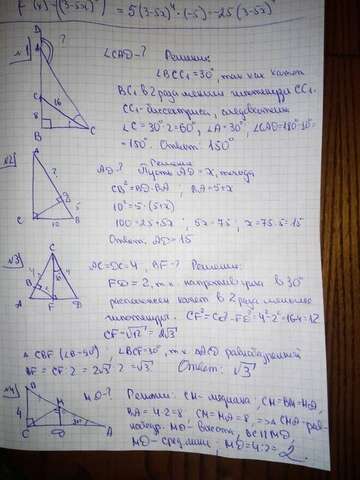 f'(x) = (3-5x)⁵ = 5(3-5x)⁴·(-5) = -25(3-5x)⁴
№1
D
A
?
C
16
8
B
C
∠CAD-? Решение:
∠BCC₁=30°, так как катет
BC₁ в 2 раза меньше гипотенузы CC₁.
CC₁-биссектриса, следовательно
∠C=30°·2=60°, ∠A=30°, ∠CAD=180°-30°=
=150°. Ответ: 150°
№2
A
?
D
5
C
10
B
AD-? Решение:
Пусть AD=x, тогда
CB²=BD·BA; BA=5+x
10²=5·(5+x)
100=25+5x; 5x=75; x=75:5=15
Ответ: AD=15
№3
C
B
4
A
F
D
AC=DC=4, BF-? Решение:
FD=2, т.к. напротив угла в 30°
расположен катет в 2 раза меньше
гипотенузы. CF²=CD²-FD²=4²-2²=16-4=12
CF=√12=2√3
△CBF (∠B=90°), ∠BCF=30°, т.к. △ACD равнобедренный
BF=CF:2=2√3:2=√3 Ответ: √3
№4
B
4
M
C
D
30°
A
MD-? Решение: CM-медиана, CM=BM=MA,
BA=4·2=8
MD-высота, BC||MD,
MD-средн.линия, MD=4:2=2.